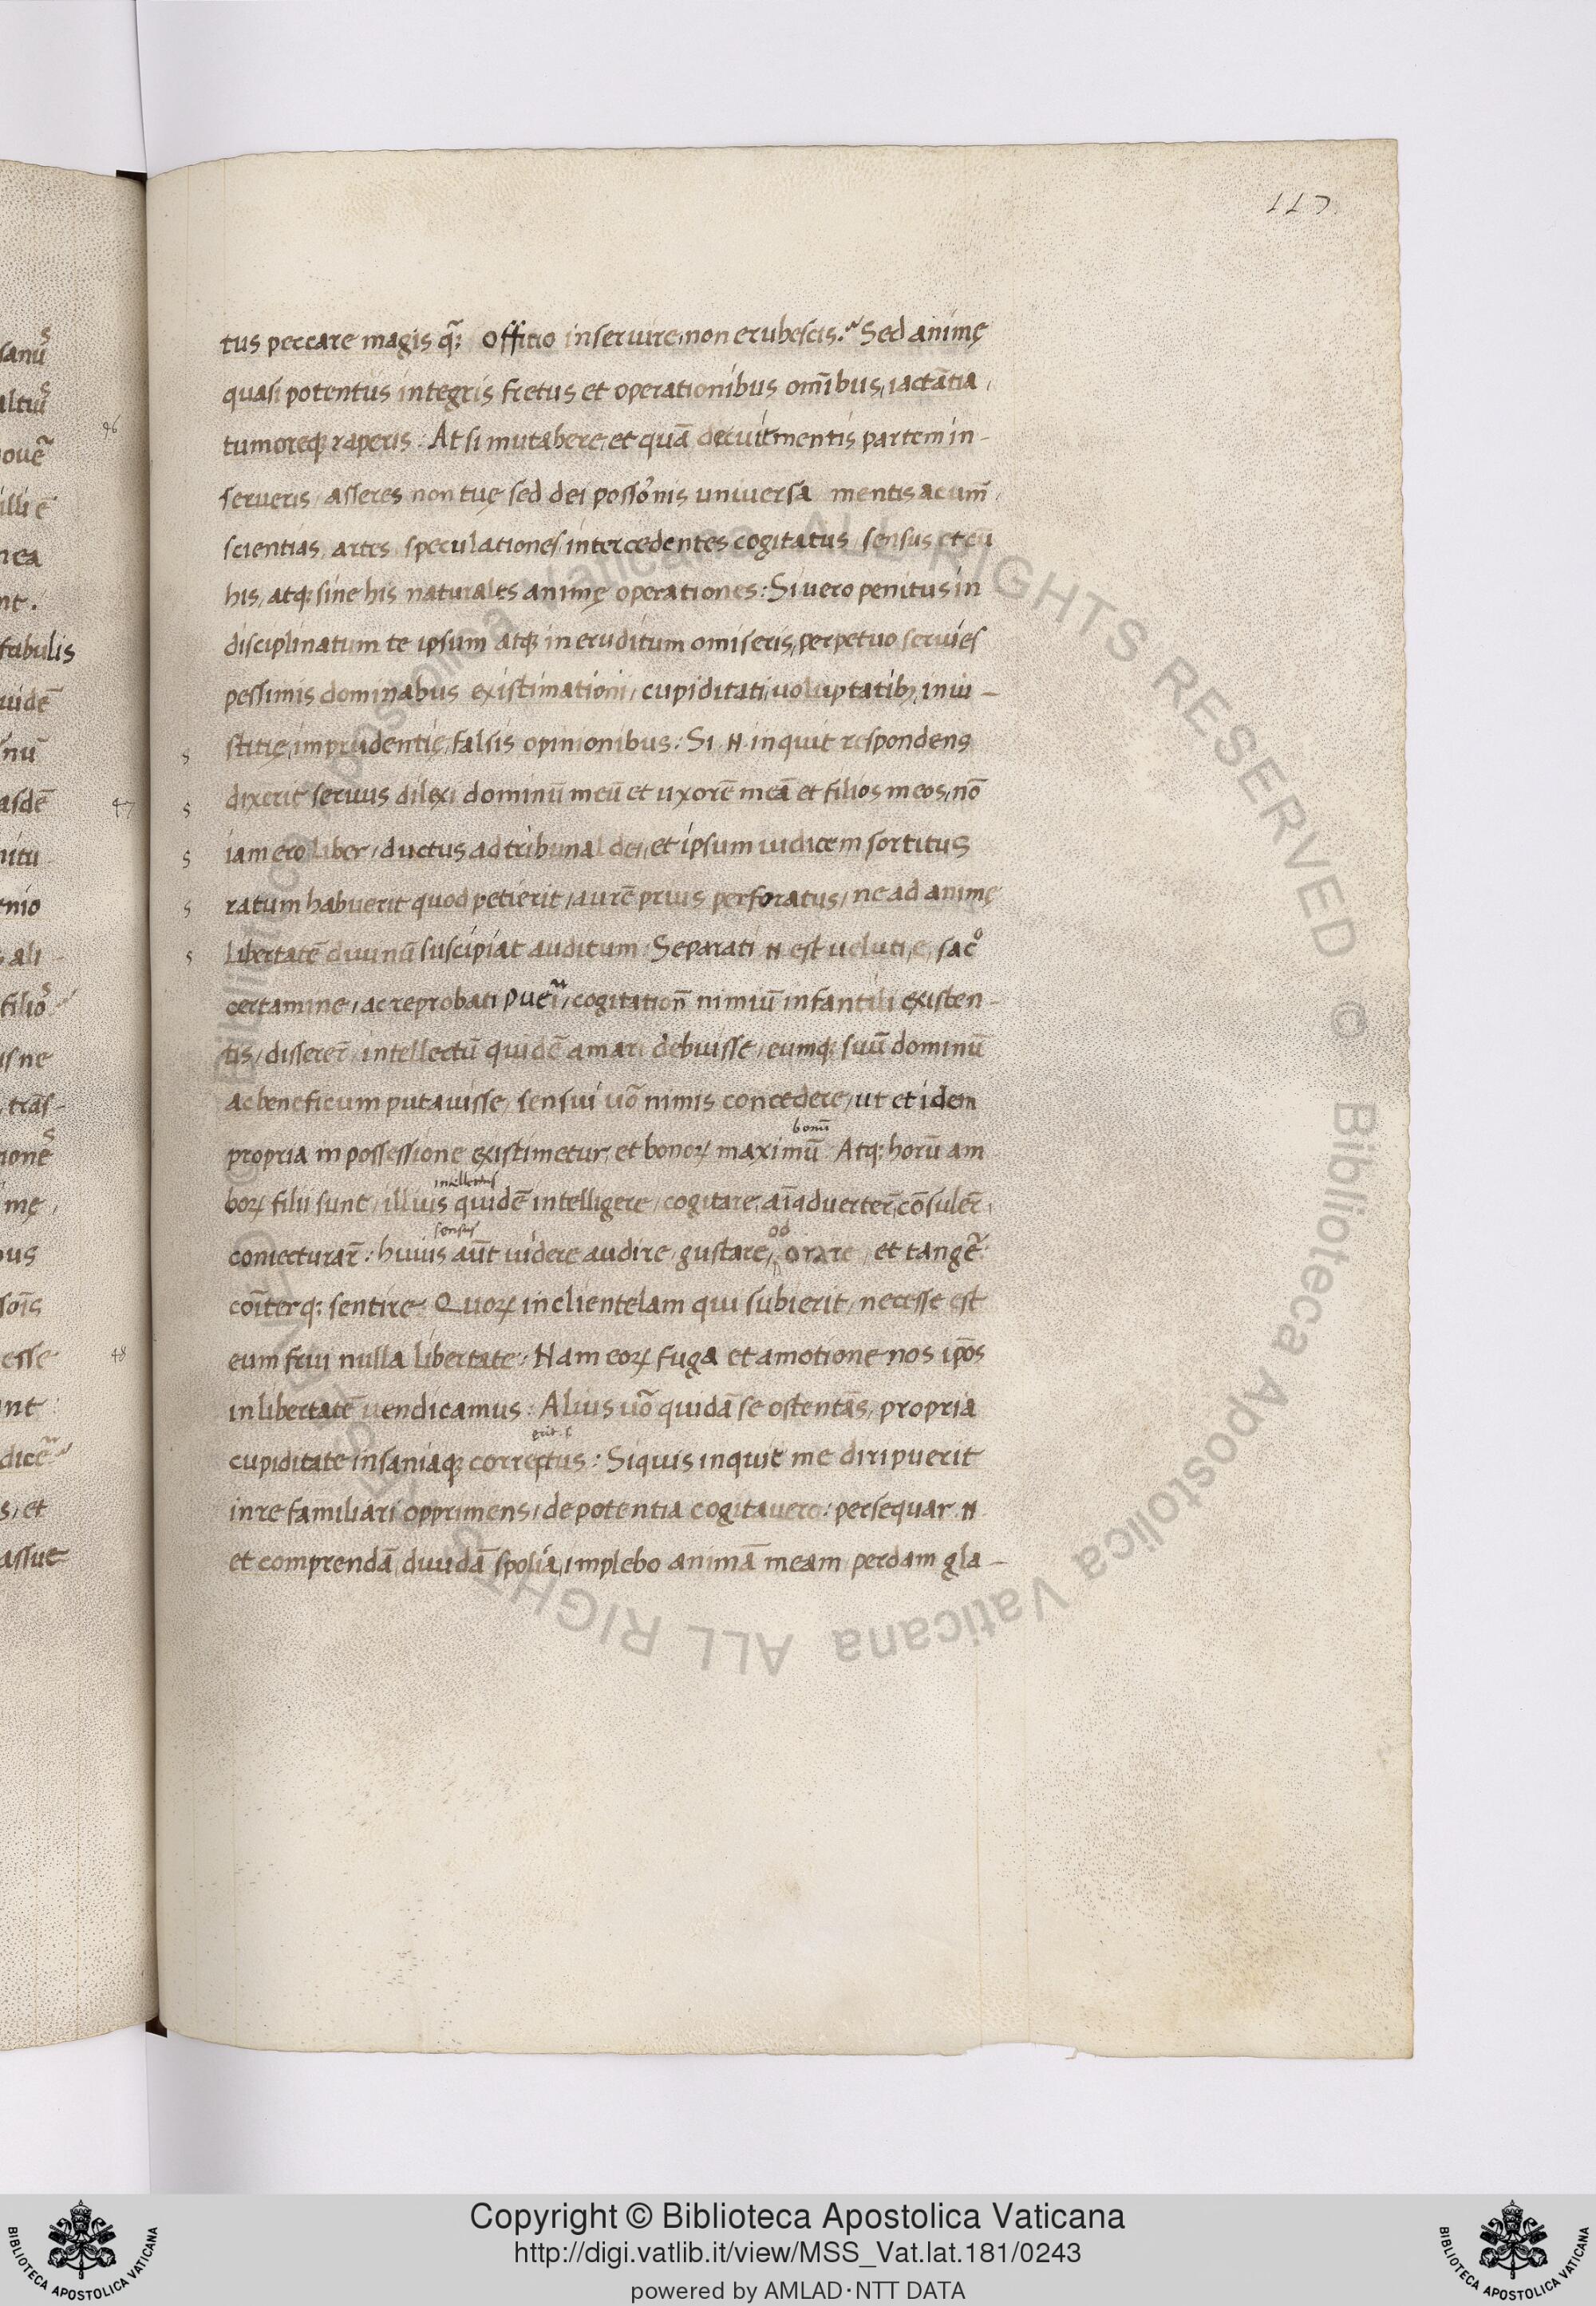 117
tus peccare magis q̃; Officio inservire, non erubescis? Sed animę
quasi potentiis integris fretus et operationibus om̄ibus, iactātia,
tumoreq; raperis: At si mutabere, et quā decuit mentis partem in-
serveris, asseres non tuę sed dei possōnis universa mentis acum̄,
scientias, artes, speculationes, intercedentes cogitatus, sensus et cū
his, atq; sine his naturales animę operationes: Si vero penitus in
disciplinatum te ipsum atq; in eruditum omiseris, perpetuo servies
pessimis dominabus existimationi, cupiditati, voluptatib; iniu-
stitię, imprudentię, falsis opinionibus: Si .N. inquit respondens
dixerit servus dilexi dominū meū et uxorē meā et filios meos, nō
iam ero liber, ductus ad tribunal dei, et ipsum iudicem sortitus
ratum habuerit quod petierit, aurē prius perforatus, ne ad animę
libertatē divinū suscipiat auditum: Separati .N. est veluti, e, sac°
certamine, ac reprobati puēi, cogitation̄ nimiū infantili existen-
tis, disserer̄, intellectū quidē amari debuisse, eumq; suū dominū
ac beneficum putavisse, sensui uō nimis concedere, ut et idem
bonū
propria in possessione existimetur, et bonoꝝ maximū: Atq; horū am
intellectus
boꝝ filii sunt, illius quidē intelligere, cogitare, aīadverter̄, cōsuler̄,
sensus
od
coniecturar̄: huius aūt videre audire, gustare, orare, et tangē:
cōīterq; sentire: Quoꝝ in clientelam qui subierit, necesse est
eum frui nulla libertate: Nam eoꝝ fuga et amotione nos ip̄os
in libertatē vendicamus: Alius uō quidā se ostentās, propria
cupiditate insaniaq; correptus: Siquis inquit me diripuerit
in re familiari opprimens, de potentia cogitavero: persequar .N.
et comprendā, dividā spolia, implebo animā meam, perdam gla-
46
47
48
s
s
s
s
s
Copyright © Biblioteca Apostolica Vaticana
http://digi.vatlib.it/view/MSS_Vat.lat.181/0243
powered by AMLAD·NTT DATA
BIBLIOTECA APOSTOLICA VATICANA
BIBLIOTECA APOSTOLICA VATICANA